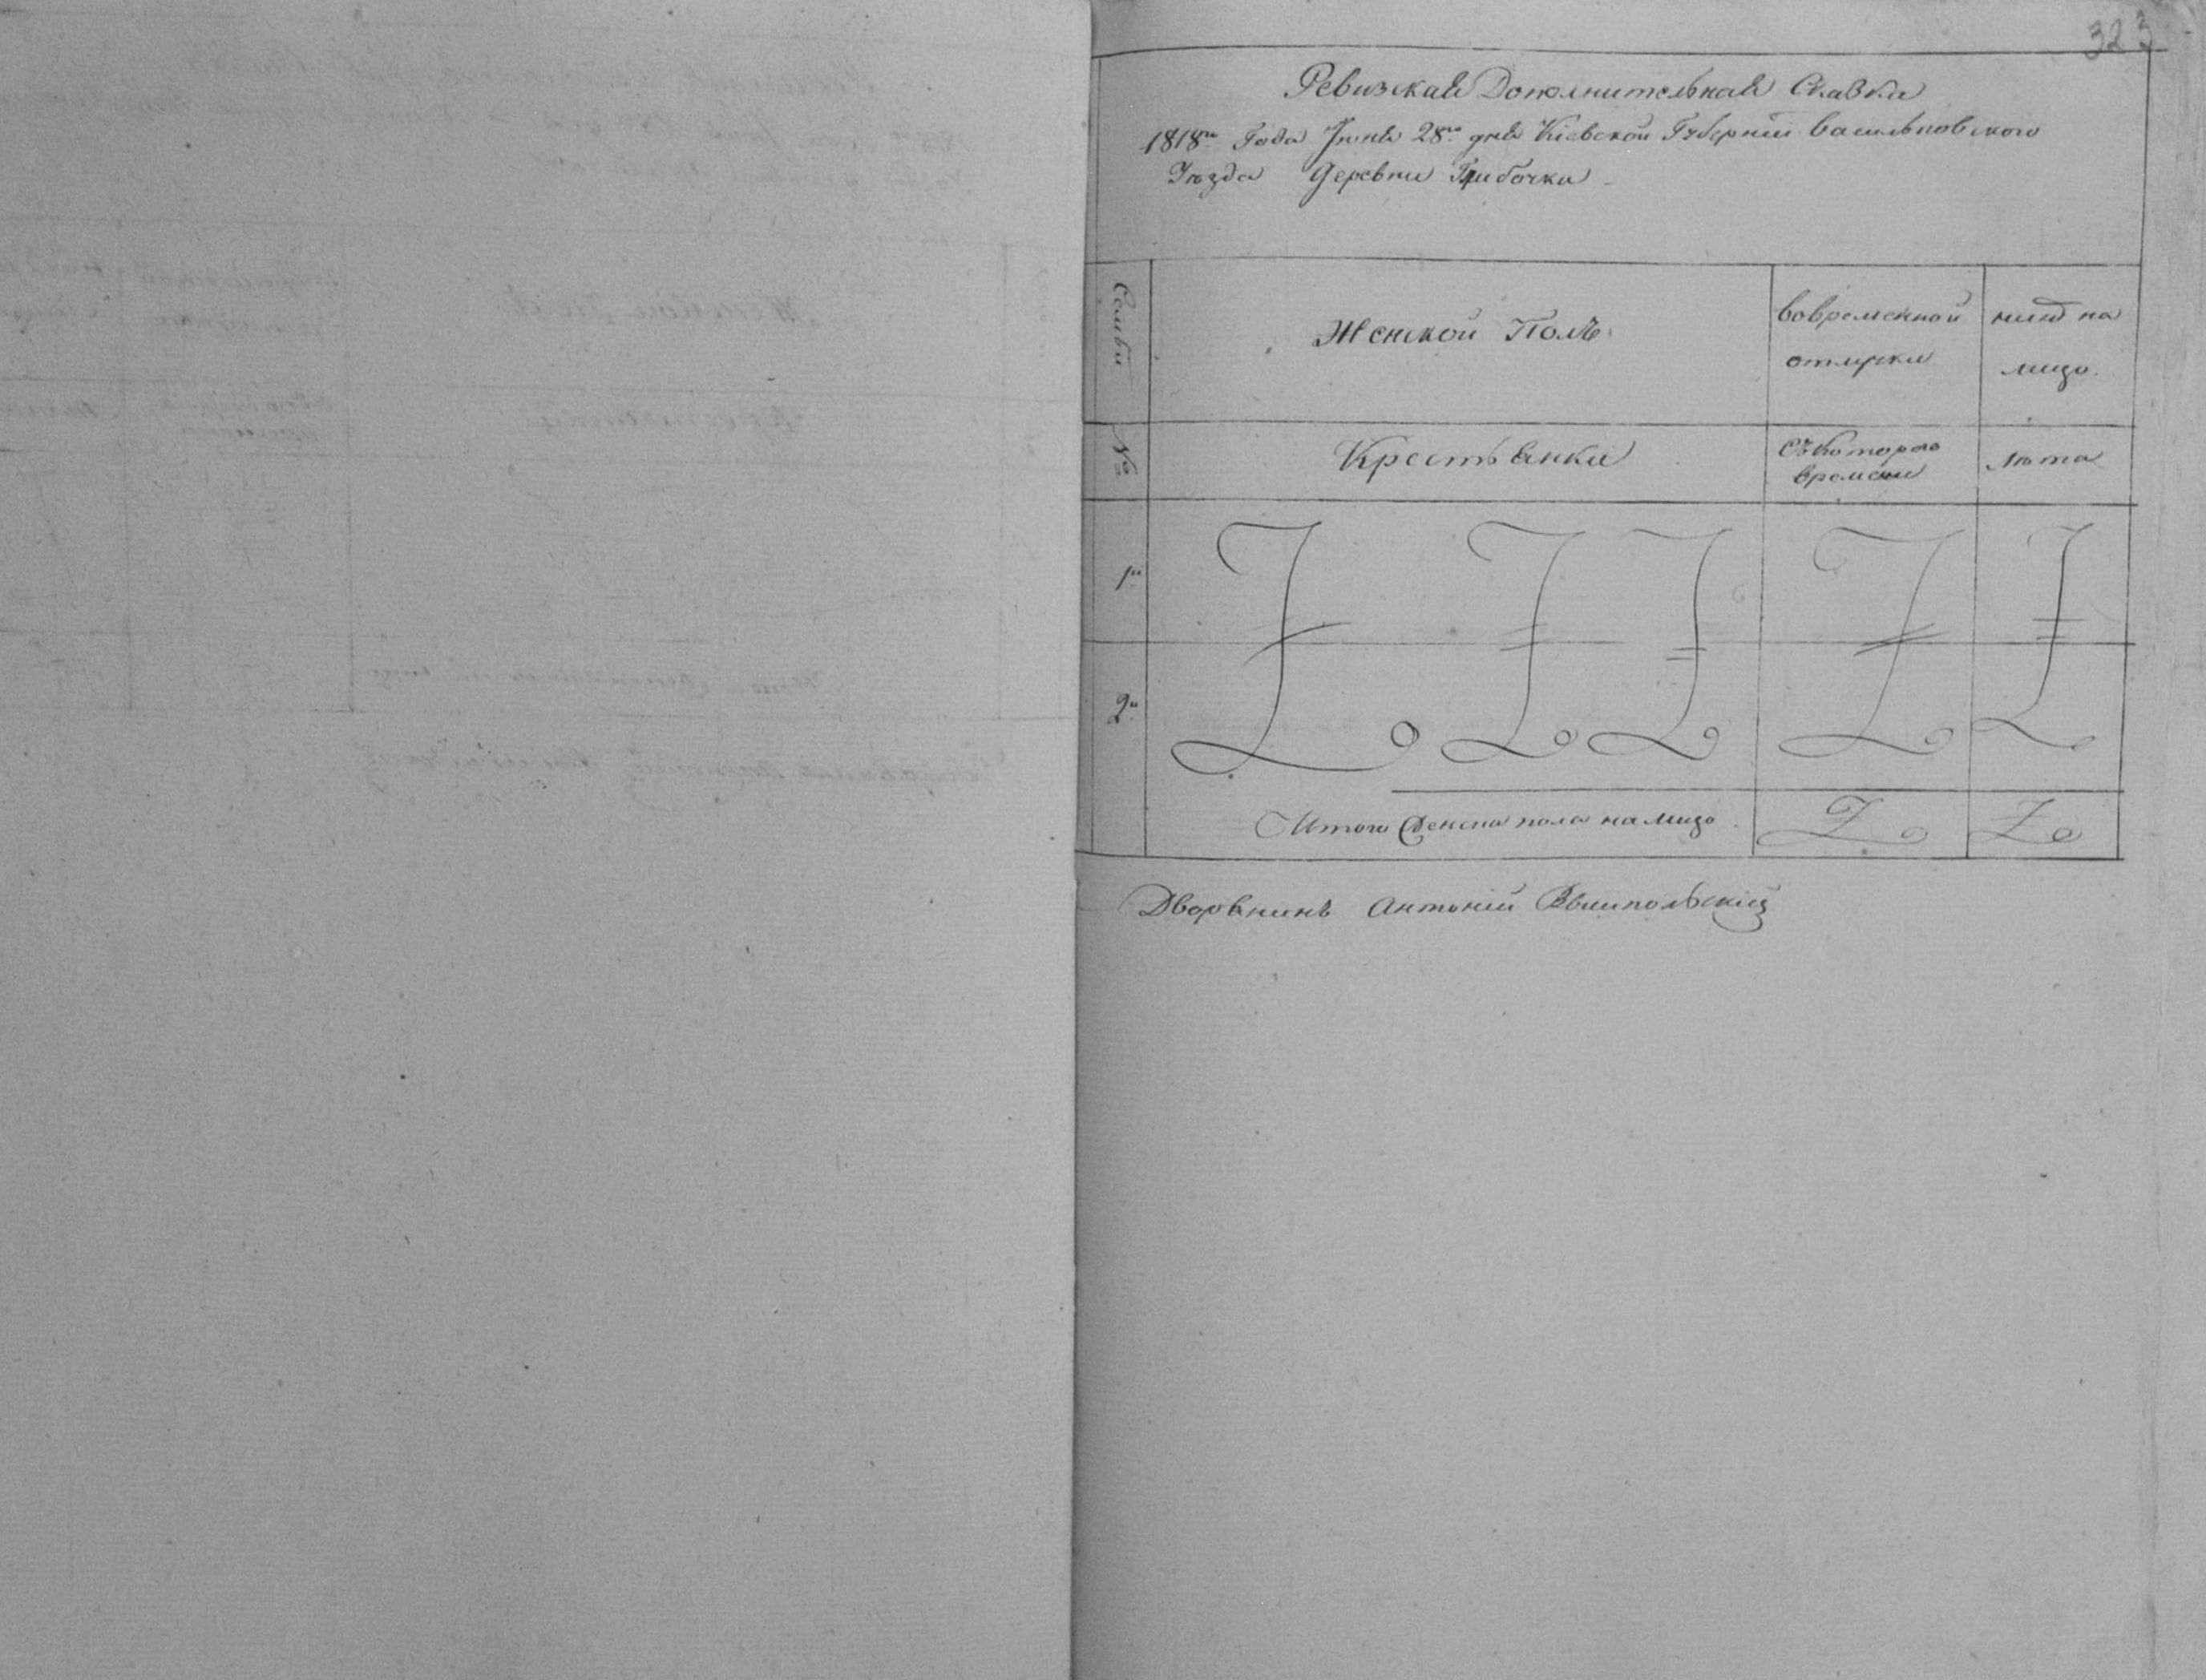 323
Ревизская Дополнительная Сказка
1818го Года Июня 28го дня Кіевской Губерніи Васильковского
Уѣзда Деревни
Семьи
Женской Полъ
вовременной
отлучки
нынѣ на
лицо.
№
Крестьянки
съ котораго
времени
лѣта
1я
2я
Итого женска пола на лицо
Дворянинъ Антоній